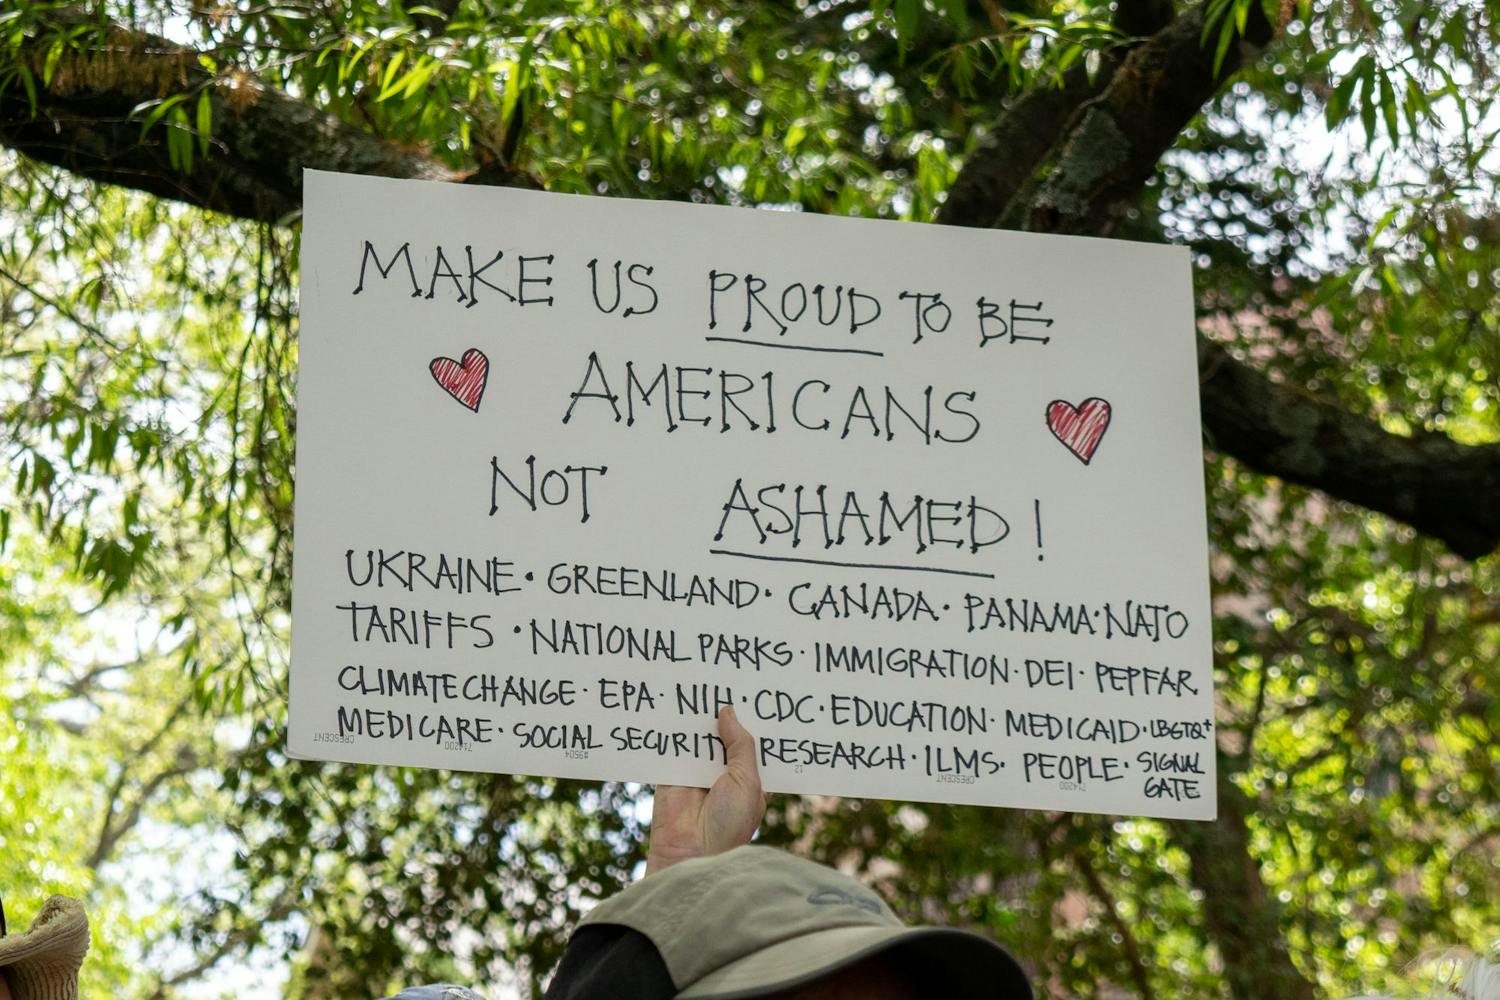 MAKE US PROUD TO BE
AMERICANS
NOT ASHAMED!
UKRAINE · GREENLAND · CANADA · PANAMA · NATO
TARIFFS · NATIONAL PARKS · IMMIGRATION · DEI · PEPFAR
CLIMATE CHANGE · EPA · NIH · CDC · EDUCATION · MEDICAID · LBGTQ+
MEDICARE · SOCIAL SECURITY RESEARCH · ILMS · PEOPLE · SIGNAL
GATE
CRESCENT 714200 #9504 12 CRESCENT 714200